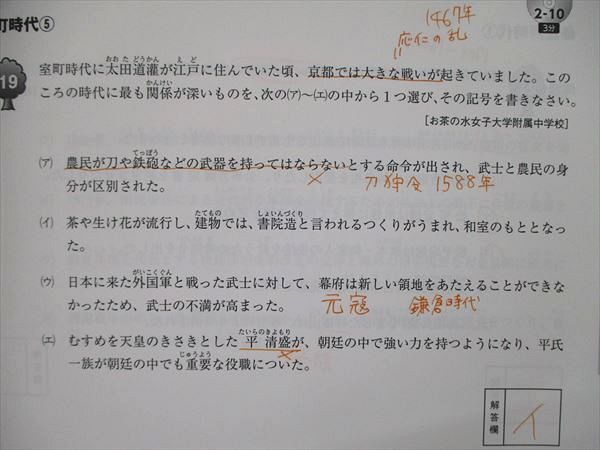 1467年
2-10
3分
町時代⑤
応仁の乱
19
室町時代に太田道灌が江戸に住んでいた頃、京都では大きな戦いが起きていました。この
ころの時代に最も関係が深いものを、次の(ア)〜(エ)の中から1つ選び、その記号を書きなさい。
[お茶の水女子大学附属中学校]
(ア) 農民が刀や鉄砲などの武器を持ってはならないとする命令が出され、武士と農民の身
分が区別された。
× 刀狩令 1588年
(イ) 茶や生け花が流行し、建物では、書院造と言われるつくりがうまれ、和室のもととなっ
た。
(ウ) 日本に来た外国軍と戦った武士に対して、幕府は新しい領地をあたえることができな
かったため、武士の不満が高まった。
元寇 鎌倉時代
(エ) むすめを天皇のきさきとした平清盛が、朝廷の中で強い力を持つようになり、平氏
一族が朝廷の中でも重要な役職についた。
×
解答欄
イ